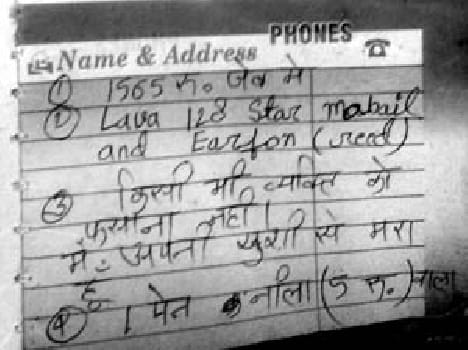 PHONES
Name & Address
① 1565 रु. जेब में
② Lava 128 Star mabail
and Earfon (reed)
③ किसी भी व्यक्ति को
फसाना नहीं।
में अपनी खुशी से मरा
हूँ
④ 1 पेन नीला (5 रु.) वाला